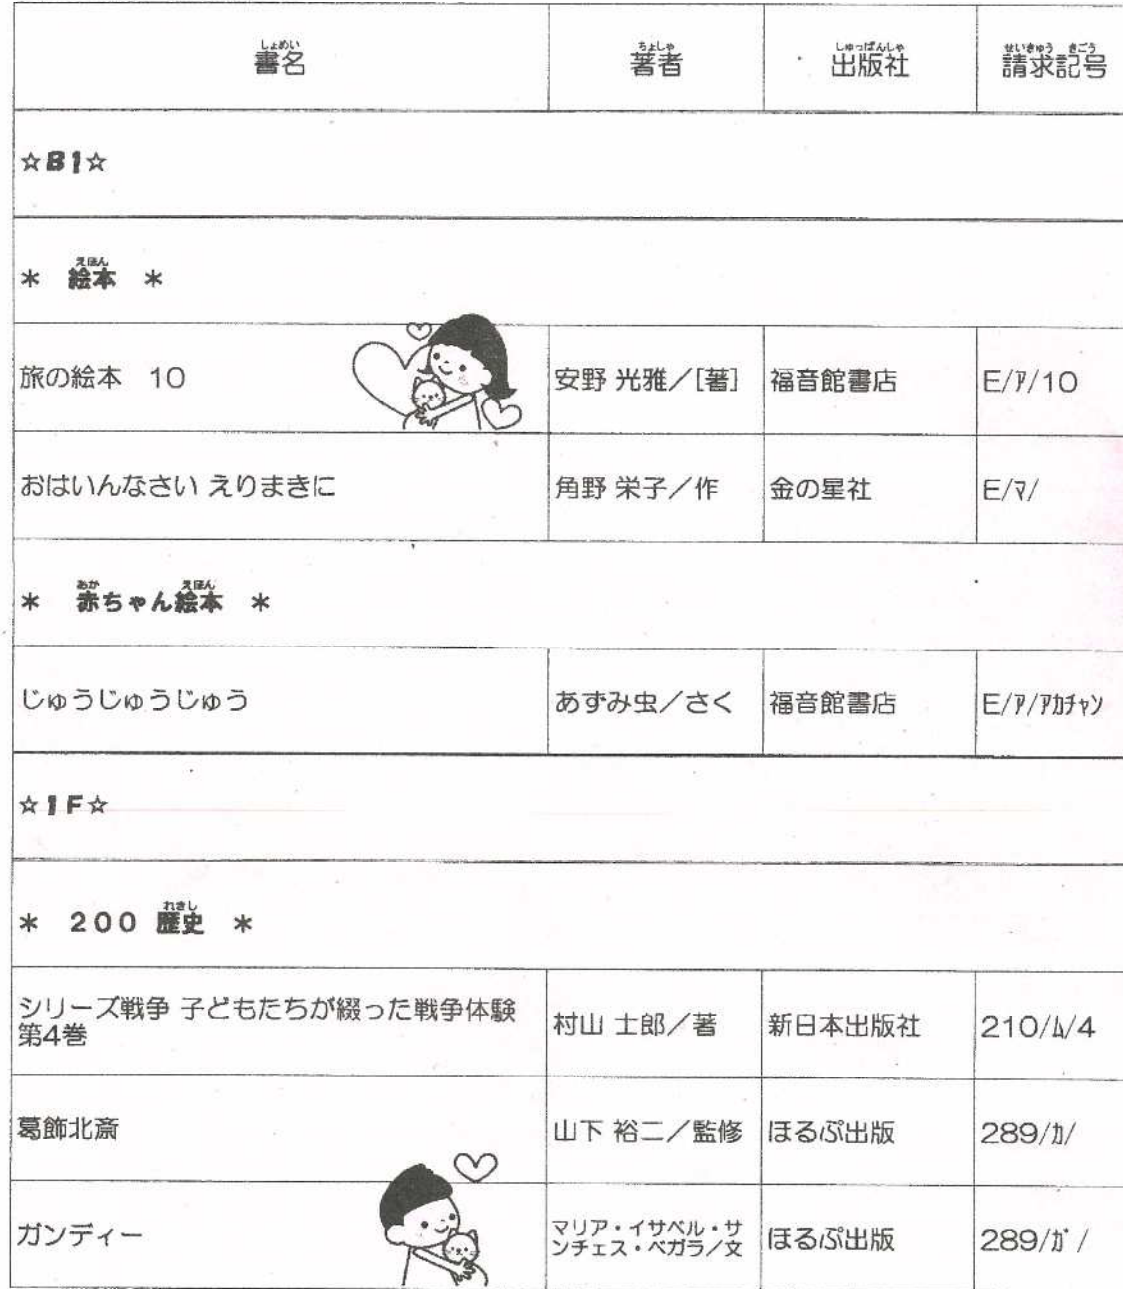 書名 著者 出版社 請求記号
☆B1☆
* 絵本 *
旅の絵本 10 安野 光雅/[著] 福音館書店 E/ｱ/10
おはいんなさい えりまきに 角野 栄子/作 金の星社 E/ﾏ/
* 赤ちゃん絵本 *
じゅうじゅうじゅう あずみ虫/さく 福音館書店 E/ｱ/ｱｶﾁｬﾝ
☆1F☆
* 200 歴史 *
シリーズ戦争 子どもたちが綴った戦争体験
第4巻 村山 士郎/著 新日本出版社 210/ﾑ/4
葛飾北斎 山下 裕二/監修 ほるぷ出版 289/ｶ/
ガンディー マリア・イサベル・サ
ンチェス・ベガラ/文 ほるぷ出版 289/ｶﾞ/